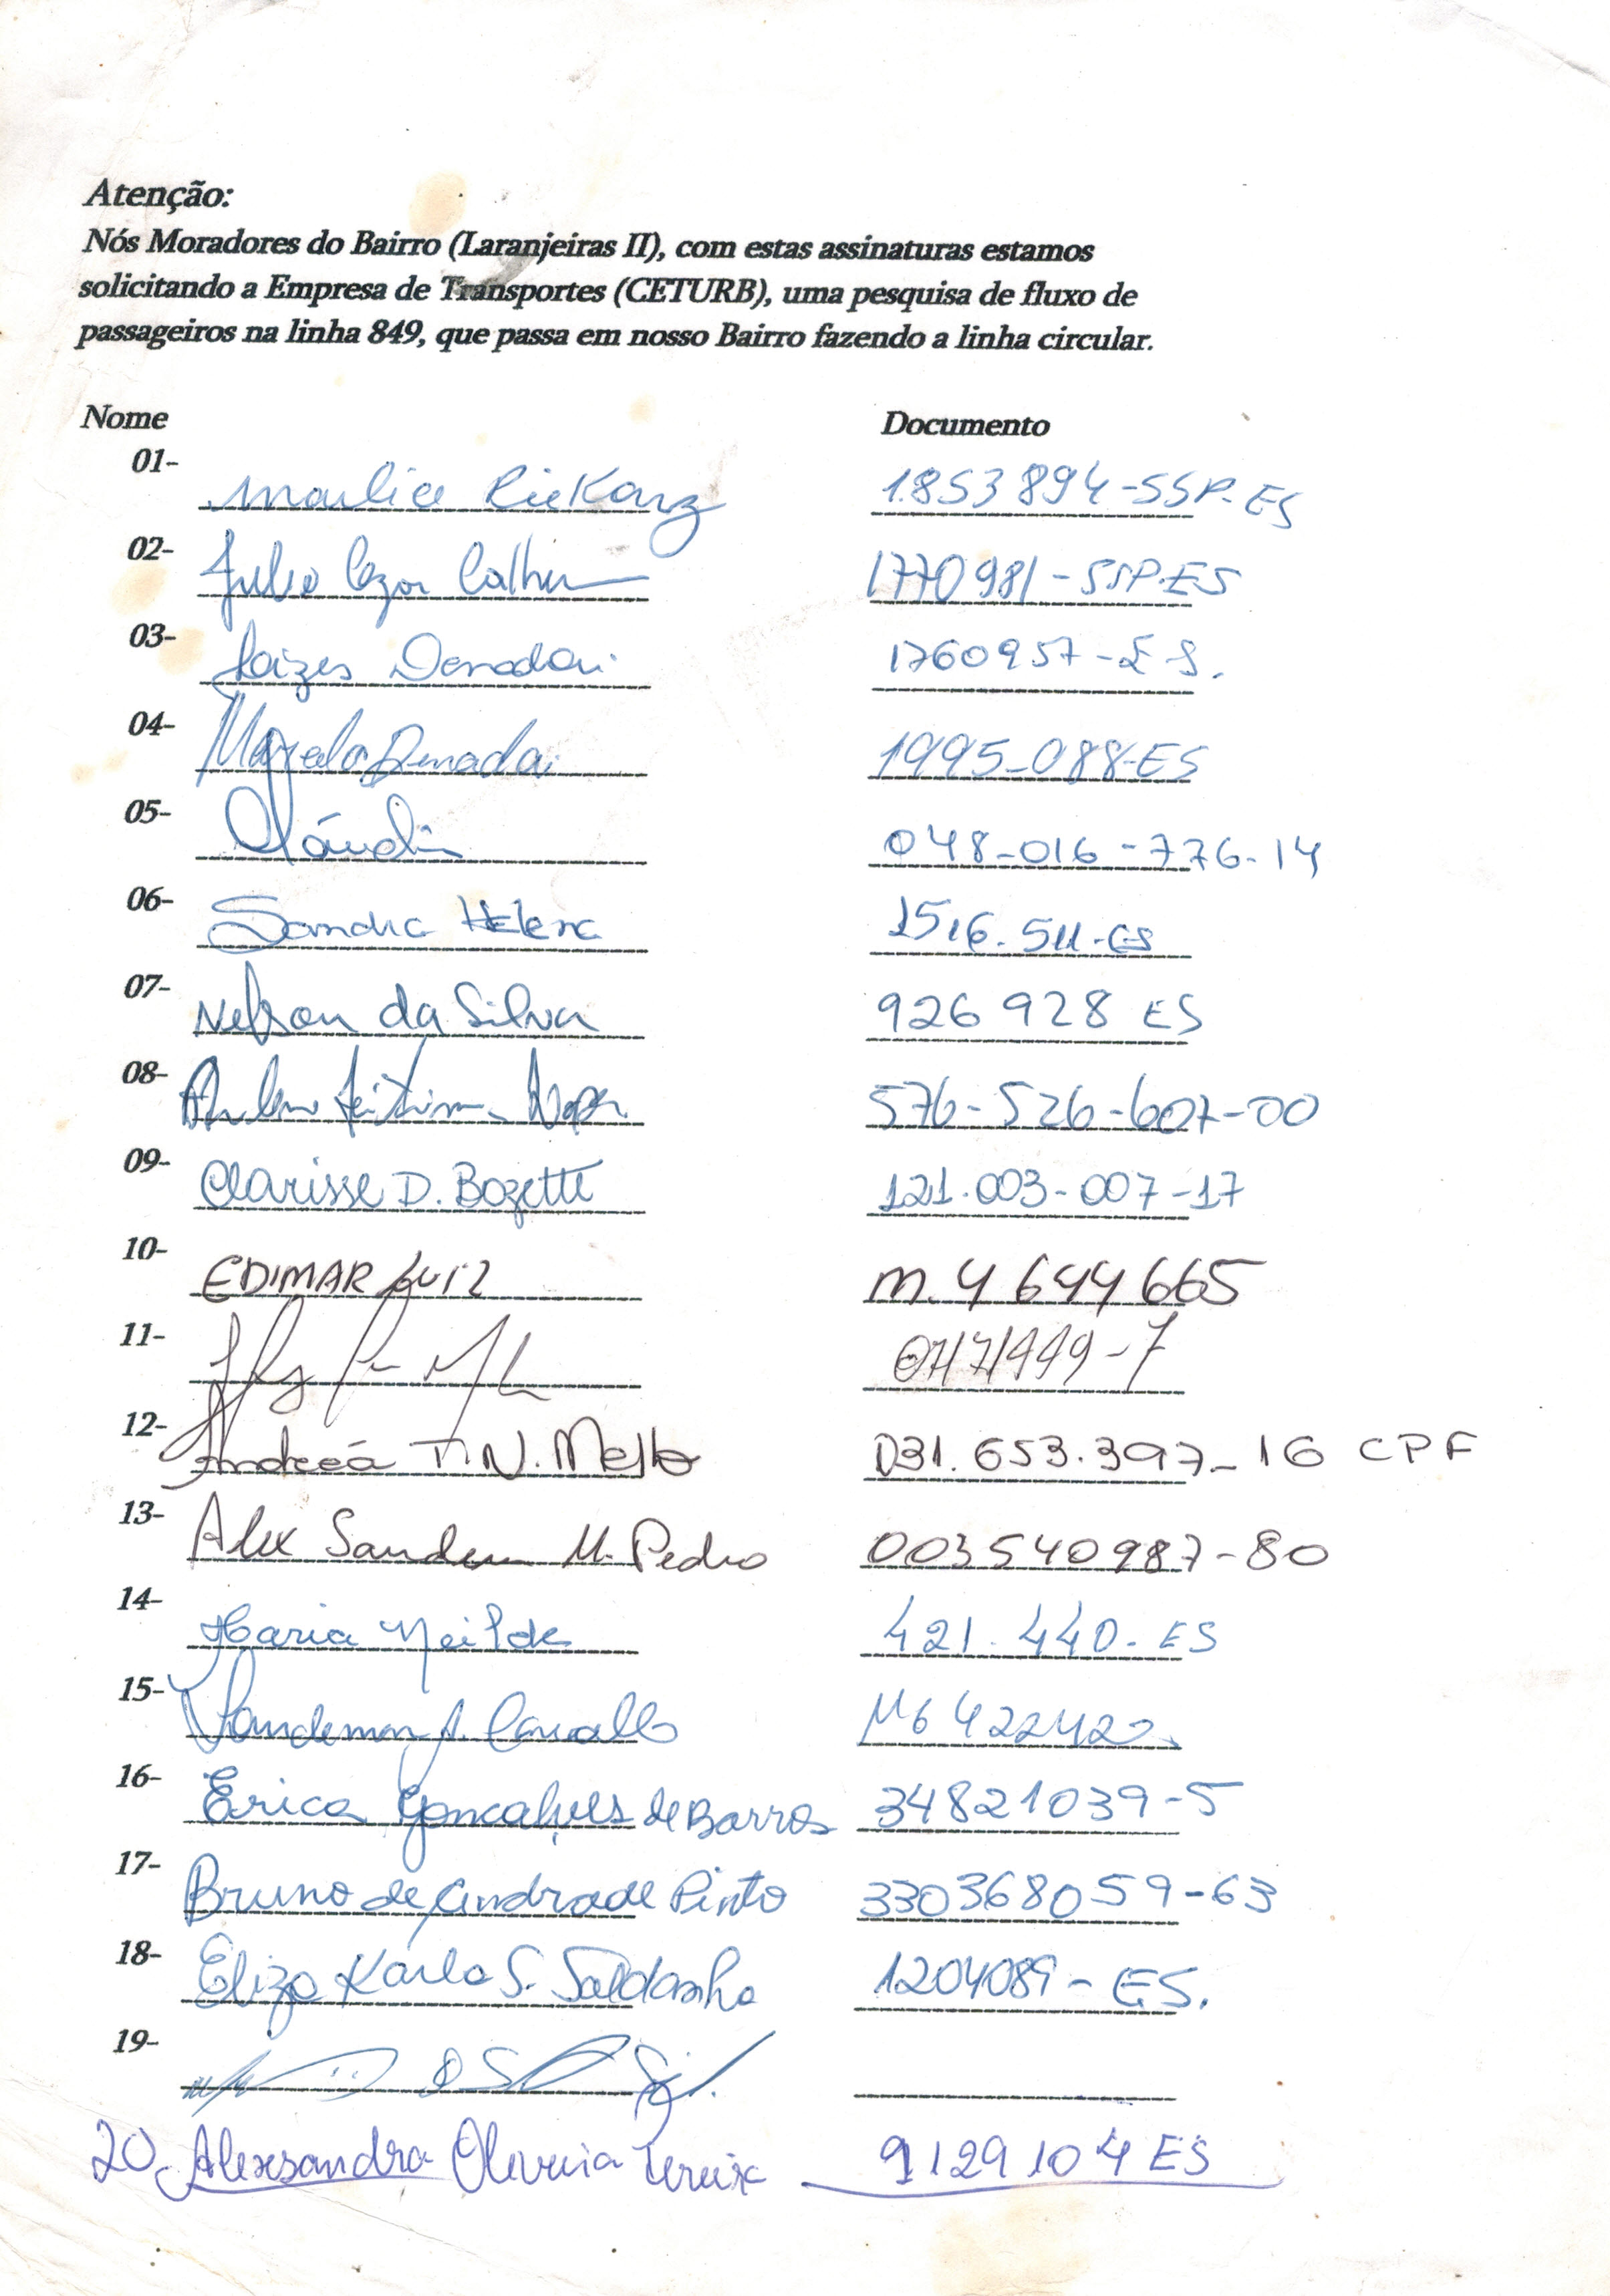 Atenção:
Nós Moradores do Bairro (Laranjeiras II), com estas assinaturas estamos
solicitando a Empresa de Transportes (CETURB), uma pesquisa de fluxo de
passageiros na linha 849, que passa em nosso Bairro fazendo a linha circular.
Nome Documento
01- 1853894-SSP-ES
02- 1770981-SSP-ES
03- Denadai 1760957-ES.
04- Denadai 1995-088-ES
05- 048-016-776-14
06- Sandra Helena 1516.511-ES
07- Nelson da Silva 926 928 ES
08- 576-526-607-00
09- Clarisse D. Bozetti 121.003-007-17
10- EDIMAR LUIZ M.4 644 665
11-
12- N. Mello 031.653.397-16 CPF
13- Alex M. Pedro 003540987-80
14- Maria Neilde 421.440-ES
15-
16- Erica Gonçalves de Barros 34821039-5
17- Bruno de Andrade Pinto 330368059-63
18- Eliza Karla S. Saldanha 1204089-ES.
19-
20 Alexsandra Oliveira 9129104 ES